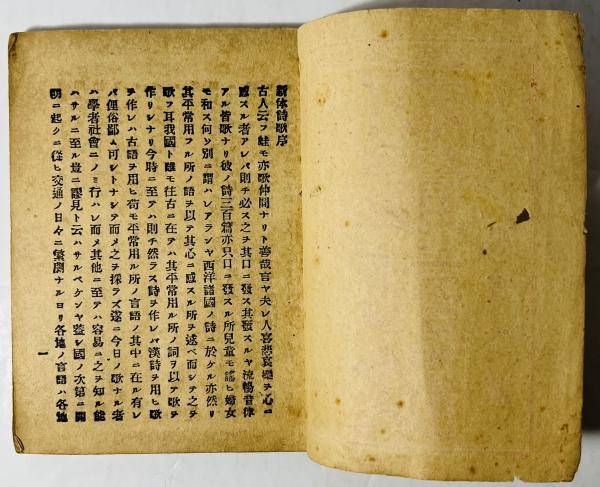 新体詩歌序
古人云フ蛙モ亦歌仲間ナリト善哉言ヤ夫レ人喜悲哀樂ヲ心ニ
感スル者アレバ則チ必ス之ヲ其口ニ發ス其發スルヤ流暢音律
アル皆歌ナリ彼ノ詩三百篇亦只口ニ發スル所兒童モ謠ヒ婦女
モ和ス何ソ別ニ謂ハレアランヤ西洋諸國ノ詩ニ於ケル亦然リ
其平常用フル所ノ語ヲ以テ其心ニ感スル所ヲ述ベ而シテ之ヲ
歌フ耳我國ト雖モ往古ニ在テハ其平常用ル所ノ詞ヲ以テ歌ヲ
作リシナリ今時ニ至テハ則チ然ラス詩ヲ作レバ漢詩ヲ用ヒ歌
ヲ作レハ古語ヲ用ヒ苟モ平常用ル所ノ言語ノ其中ニ在ル有レ
バ俚俗鄙ム可シトナシテ而メ之ヲ採ラズ遂ニ今日ノ歌ナル者
ハ學者社會ニノミ行ハレ而メ其他ニ至テハ容易ニ之ヲ知ル能
ハサルニ至ル豈ニ謬見ト云ハサルベケンヤ蓋シ國ノ次第ニ開
明ニ起クニ從ヒ交通ノ日々ニ繁劇ナルヨリ各地ノ言語ハ各地
一